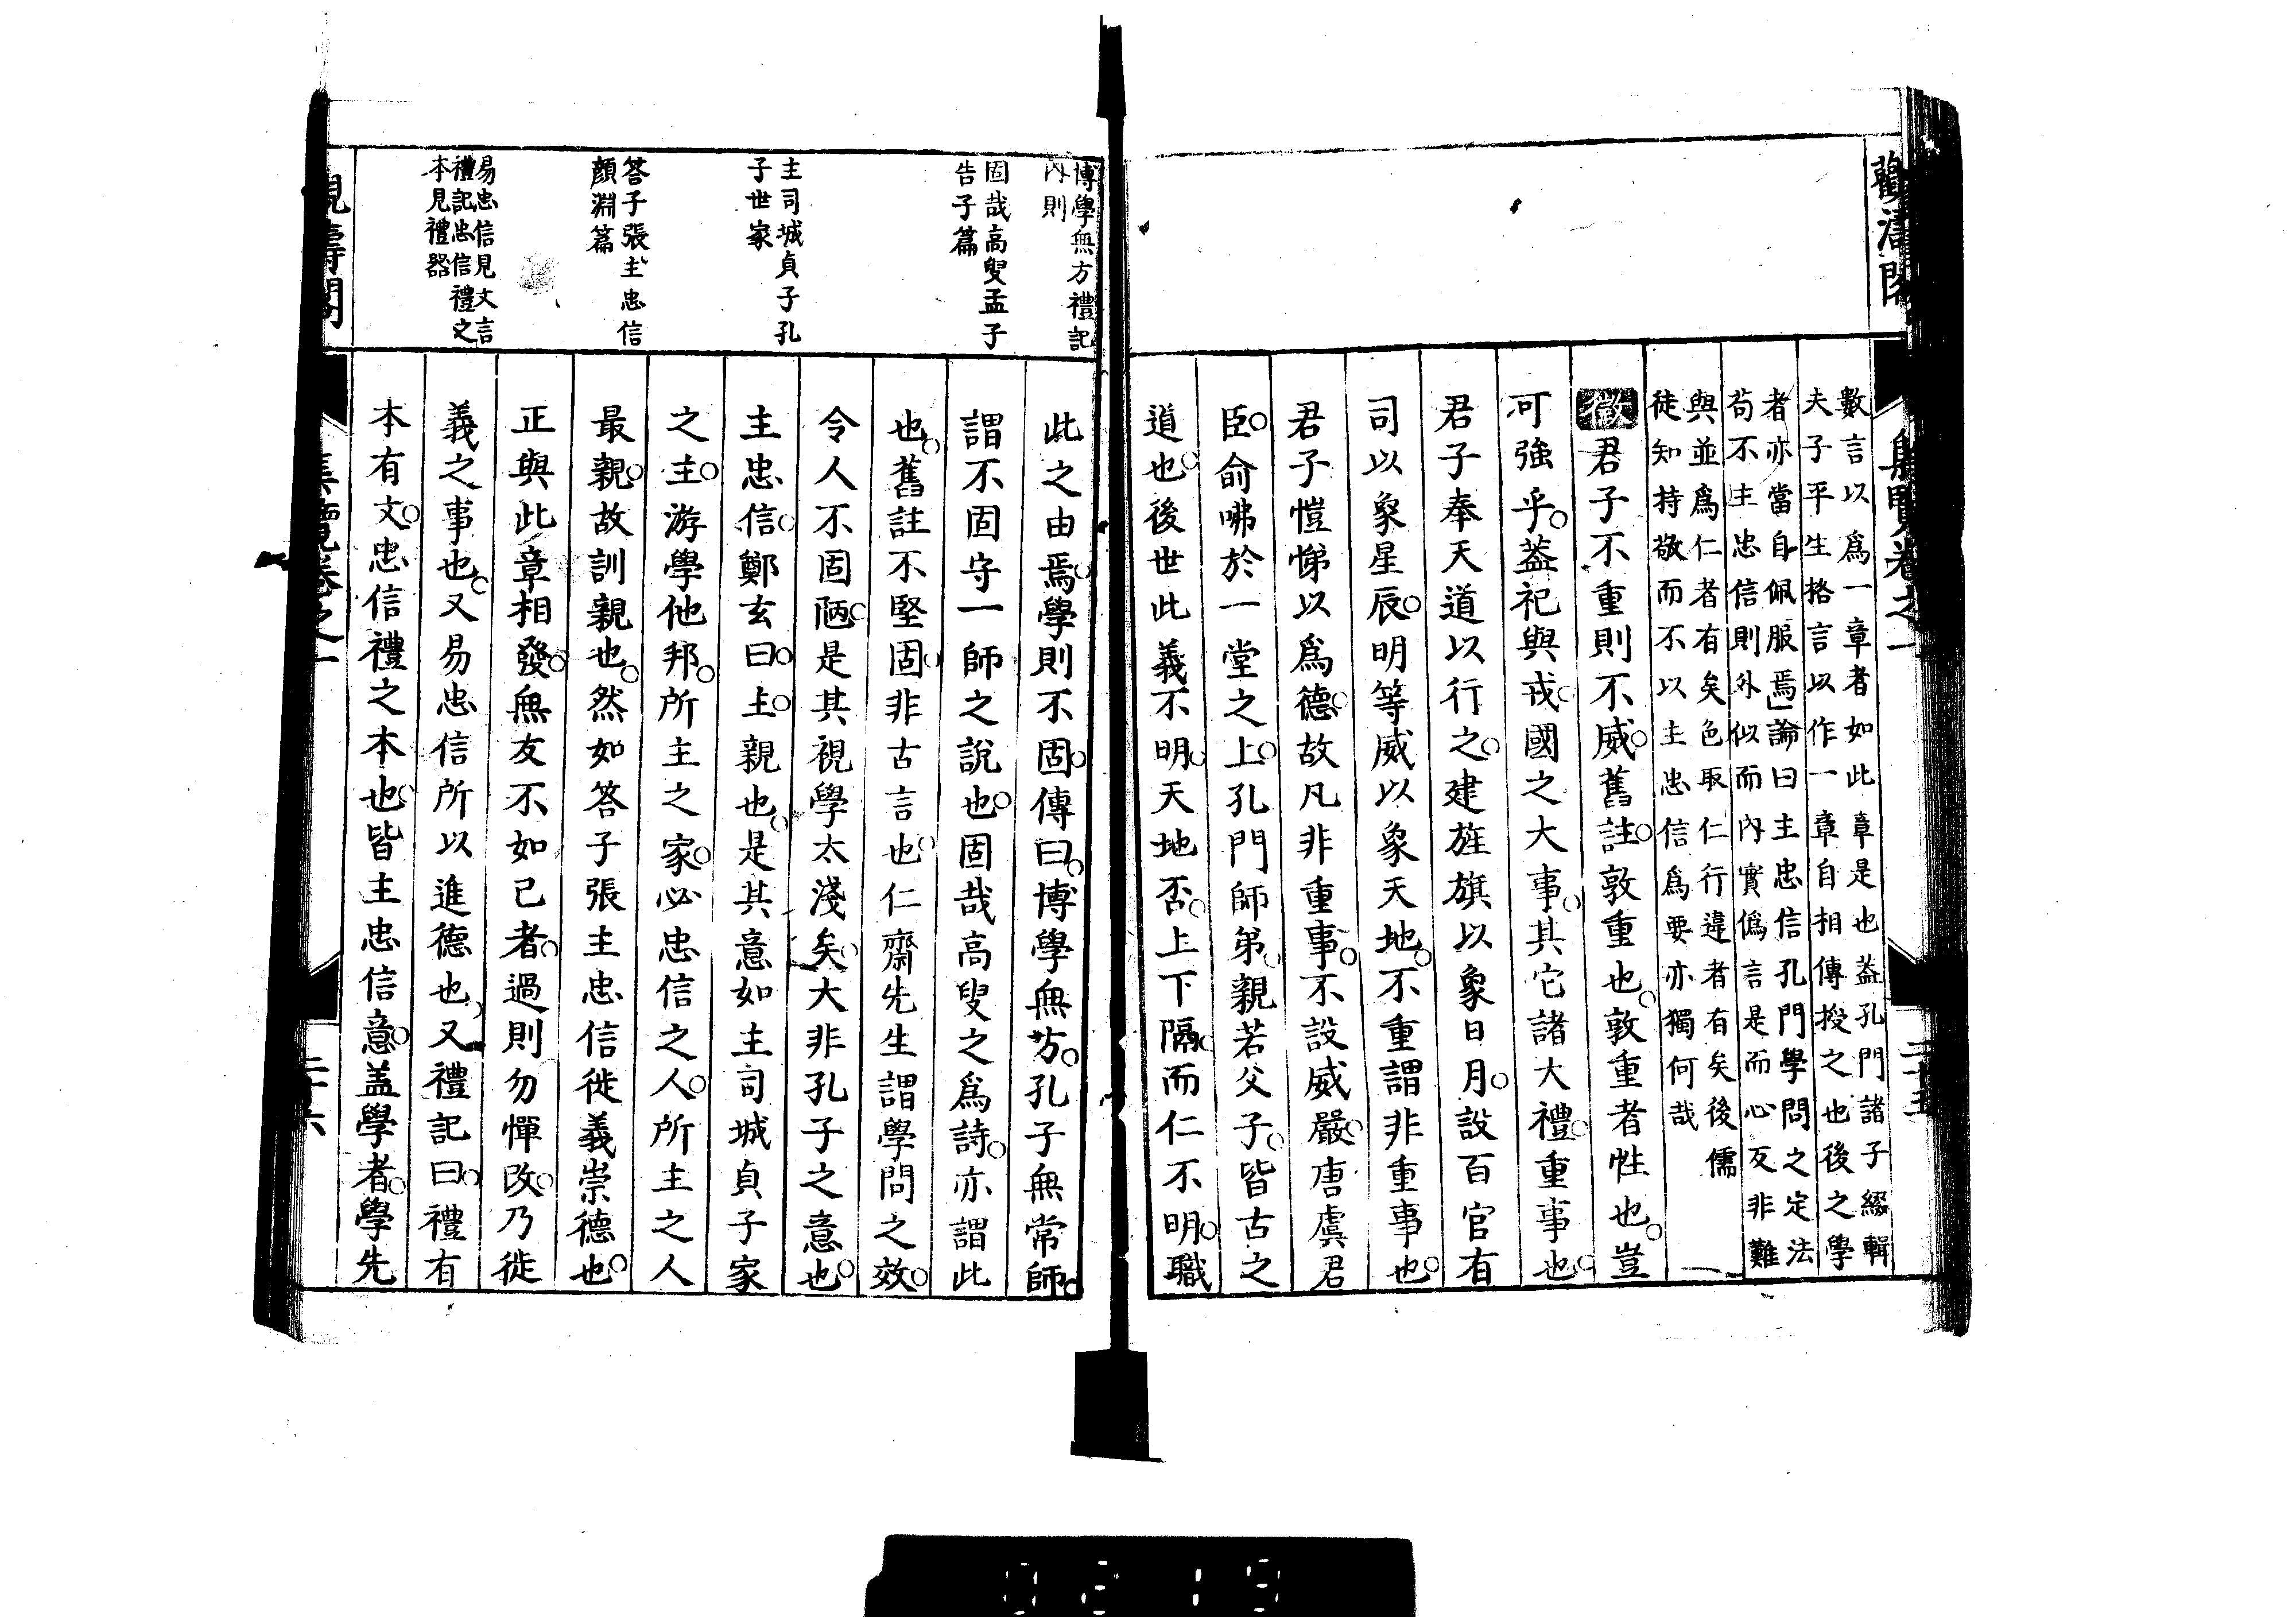 觀濤閣
集覽卷之一
二十五
數言以爲一章者如此章是也蓋孔門諸子綴輯
夫子平生格言以作一章自相傳授之也後之學
者亦當自佩服焉」論曰主忠信孔門學問之定法
苟不主忠信則外似而內實僞言是而心反非難
與並爲仁者有矣色取仁行違者有矣後儒
徒知持敬而不以主忠信爲要亦獨何哉
徵君子不重則不威舊註敦重也敦重者性也豈
可強乎蓋祀與戎國之大事其它諸大禮重事也
君子奉天道以行之建旌旗以象日月設百官有
司以象星辰明等威以象天地不重謂非重事也
君子愷悌以爲德故凡非重事不設威嚴唐虞君
臣俞咈於一堂之上孔門師弟親若父子皆古之
道也後世此義不明天地否上下隔而仁不明職
博學無方禮記
內則
固哉高叟孟子
告子篇
主司城貞子孔
子世家
答子張主忠信
顏淵篇
易忠信見文言
禮記忠信禮之
本見禮器
此之由焉學則不固傳曰博學無方孔子無常師
謂不固守一師之說也固哉高叟之爲詩亦謂此
也舊註不堅固非古言也仁齋先生謂學問之效
令人不固陋是其視學太淺矣大非孔子之意也
主忠信鄭玄曰主親也是其意如主司城貞子家
之主游學他邦所主之家必忠信之人所主之人
最親故訓親也然如答子張主忠信徙義崇德也
正與此章相發無友不如己者過則勿憚改乃徙
義之事也又易忠信所以進德也又禮記曰禮有
本有文忠信禮之本也皆主忠信意盖學者學先
觀濤閣
集覽卷之一
二十六